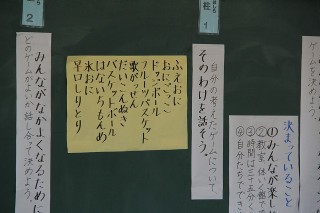 柱
1
決まっていること
①みんなが楽し
②教室、体いく館で
③時間は三十五分
④自分たちで
自分の考えたゲームについて、
そのわけを話そう。
ふえおに
おにごっこ
ドッジボール
フルーツバスケット
歌がっせん
だいこんぬき
バスケットボール
はないちもんめ
氷おに
早口しりとり
2
みんながなかよくなるために
どのゲームがよいか話し合って決めよう。